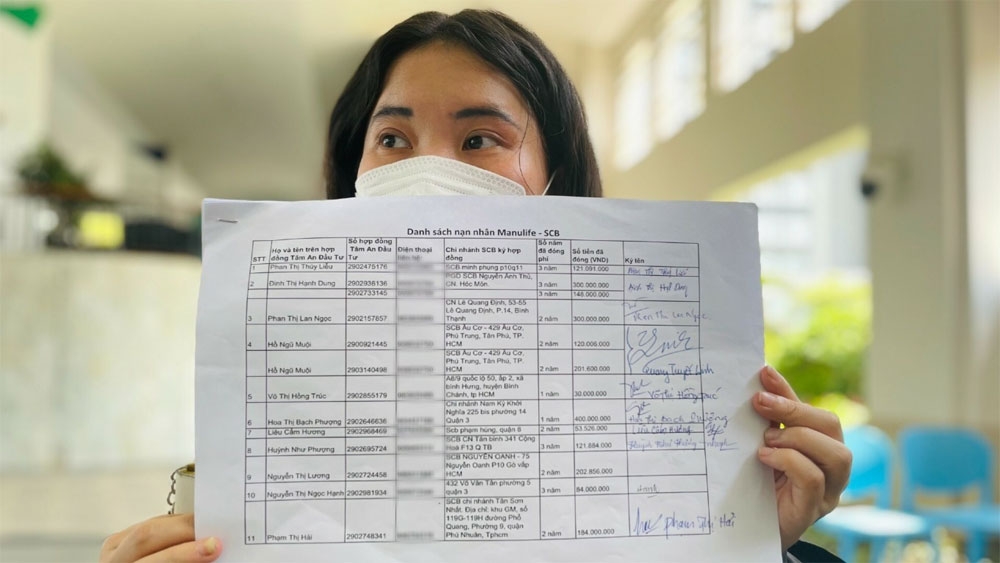 Danh sách nạn nhân Manulife - SCB
STT Họ và tên trên hợp đồng Tâm An Đầu Tư Số hợp đồng Tâm An Đầu Tư Điện thoại Chi nhánh SCB ký hợp đồng Số năm đã đóng phí Số tiền đã đóng (VND) Ký tên
1 Phan Thị Thúy Liễu 2902475176 SCB minh phung p10q11 3 năm 121.091.000
2 Đinh Thị Hạnh Dung 2902938136 PGD SCB Nguyễn Ảnh Thủ, CN. Hóc Môn. 3 năm 300.000.000
2902733145 3 năm 148.000.000
3 Phan Thị Lan Ngọc 2902157857 CN Lê Quang Định, 53-55 Lê Quang Định, P.14, Bình Thạnh 2 năm 300.000.000 Phan Thị Lan Ngọc
4 Hồ Ngũ Muội 2900921445 SCB Âu Cơ - 429 Âu Cơ, Phú Trung, Tân Phú, TP. HCM 2 năm 120.006.000
Hồ Ngũ Muội 2903140498 SCB Âu Cơ - 429 Âu Cơ, Phú Trung, Tân Phú, TP. HCM 2 năm 201.600.000
5 Võ Thị Hồng Trúc 2902855179 A6/9 quốc lộ 50, ấp 2, xã bình Hưng, huyện Bình Chánh, tp HCM 1 năm 30.000.000 Võ Thị Hồng Trúc
6 Hoa Thị Bạch Phượng 2902646636 Chi nhánh Nam Kỳ Khởi Nghĩa 225 bis phường 14 Quận 3 1 năm 400.000.000
7 Liêu Cẩm Hương 2902968469 Scb phạm hùng, quận 8 2 năm 53.526.000 Liêu Cẩm Hương
8 Huỳnh Như Phượng 2902695724 SCB CN Tân bình 341 Cộng Hoà F13 Q TB 3 năm 121.884.000
9 Nguyễn Thị Lương 2902724458 SCB NGUYEN OANH - 75 Nguyễn Oanh P10 Gò vấp HCM 2 năm 202.856.000
10 Nguyễn Thị Ngọc Hạnh 2902981934 432 Võ Văn Tần phường 5 quận 3 3 năm 84.000.000
11 Phạm Thị Hải 2902748341 SCB chi nhánh Tân Sơn Nhất. Địa chỉ: khu GM, số 119G-119H đường Phổ Quang, Phường 9, quận Phú Nhuận, Tphcm 2 năm 184.000.000 Phạm Thị Hải